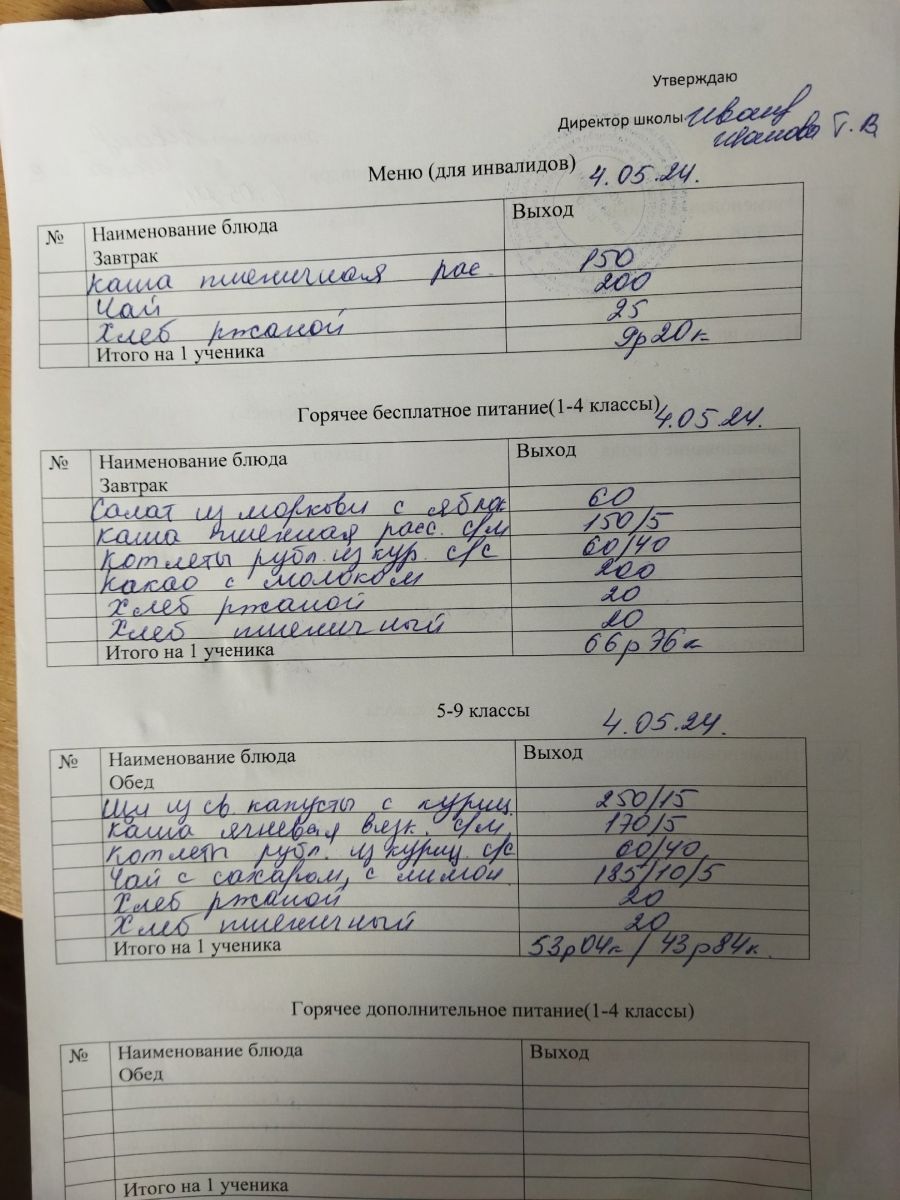 Утверждаю
Директор школы
Иванова Т. В.
Меню (для инвалидов) 4.05.24.
№ Наименование блюда Выход
Завтрак
Каша пшеничная рас. 150
Чай 200
Хлеб ржаной 25
Итого на 1 ученика 9р20к
Горячее бесплатное питание(1-4 классы) 4.05.24.
№ Наименование блюда Выход
Завтрак
Салат из моркови с яблок 60
Каша пшенная расс. с/м 150/5
Котлеты рубл. из кур. с/с 60/40
Какао с молоком 200
Хлеб ржаной 20
Хлеб пшеничный 20
Итого на 1 ученика 66р76к
5-9 классы 4.05.24.
№ Наименование блюда Выход
Обед
Щи из св. капусты с куриц. 250/15
Каша ячневая вязк. с/м 170/5
Котлеты рубл. из куриц. с/с 60/40
Чай с сахаром, с лимон 185/10/5
Хлеб ржаной 20
Хлеб пшеничный 20
Итого на 1 ученика 53р04к / 43р84к.
Горячее дополнительное питание(1-4 классы)
№ Наименование блюда Выход
Обед
Итого на 1 ученика